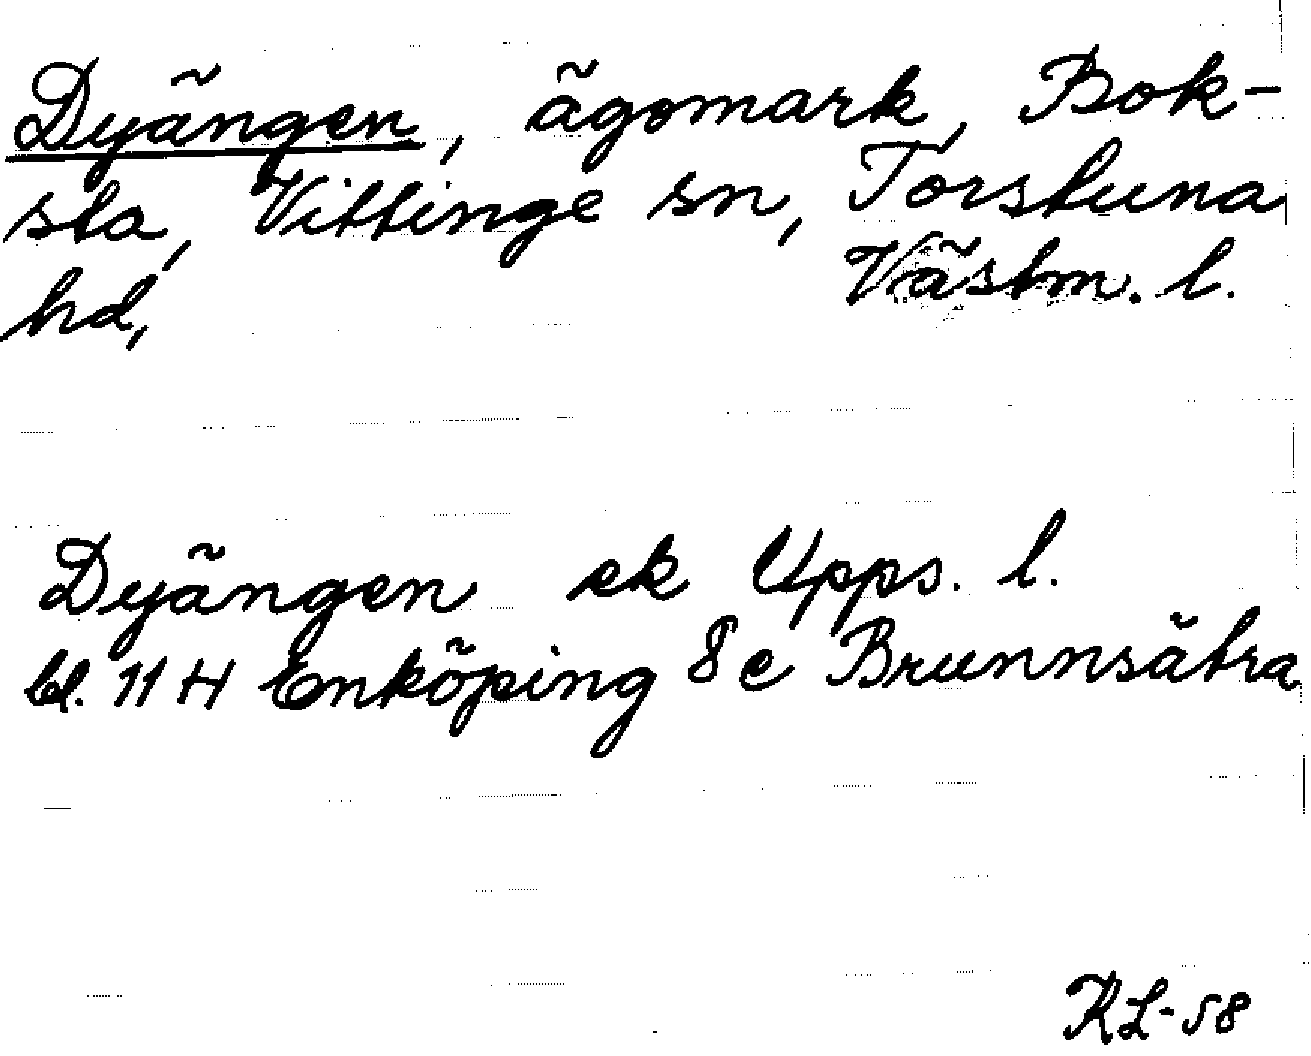 Dyängen, ägomark, Bok-
sta, Vittinge sn, Torstuna
hd, Västm. l.
Dyängen ek Upps. l.
bl. 11 H Enköping 8 e Brunnsätra
RL-58